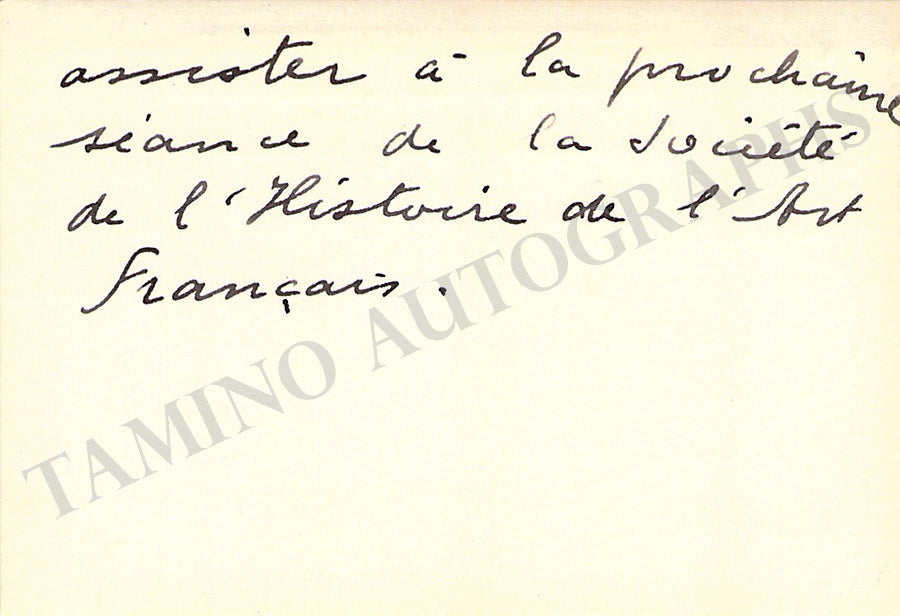 assister à la prochaine
séance de la Société
de l'Histoire de l'Art
Français.
TAMINO AUTOGRAPHS